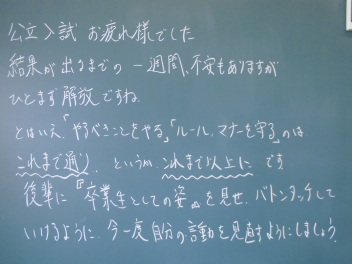 公立入試 お疲れ様でした
結果が出るまでの一週間、不安もありますが
ひとまず解放ですね。
とはいえ、「やるべきことをやる」「ルール、マナーを守る」のは
これまで通り、というか、これまで以上に です
後輩に『卒業生としての姿』を見せ、バトンタッチして
いけるように、今一度自分の言動を見直すようにしましょう。